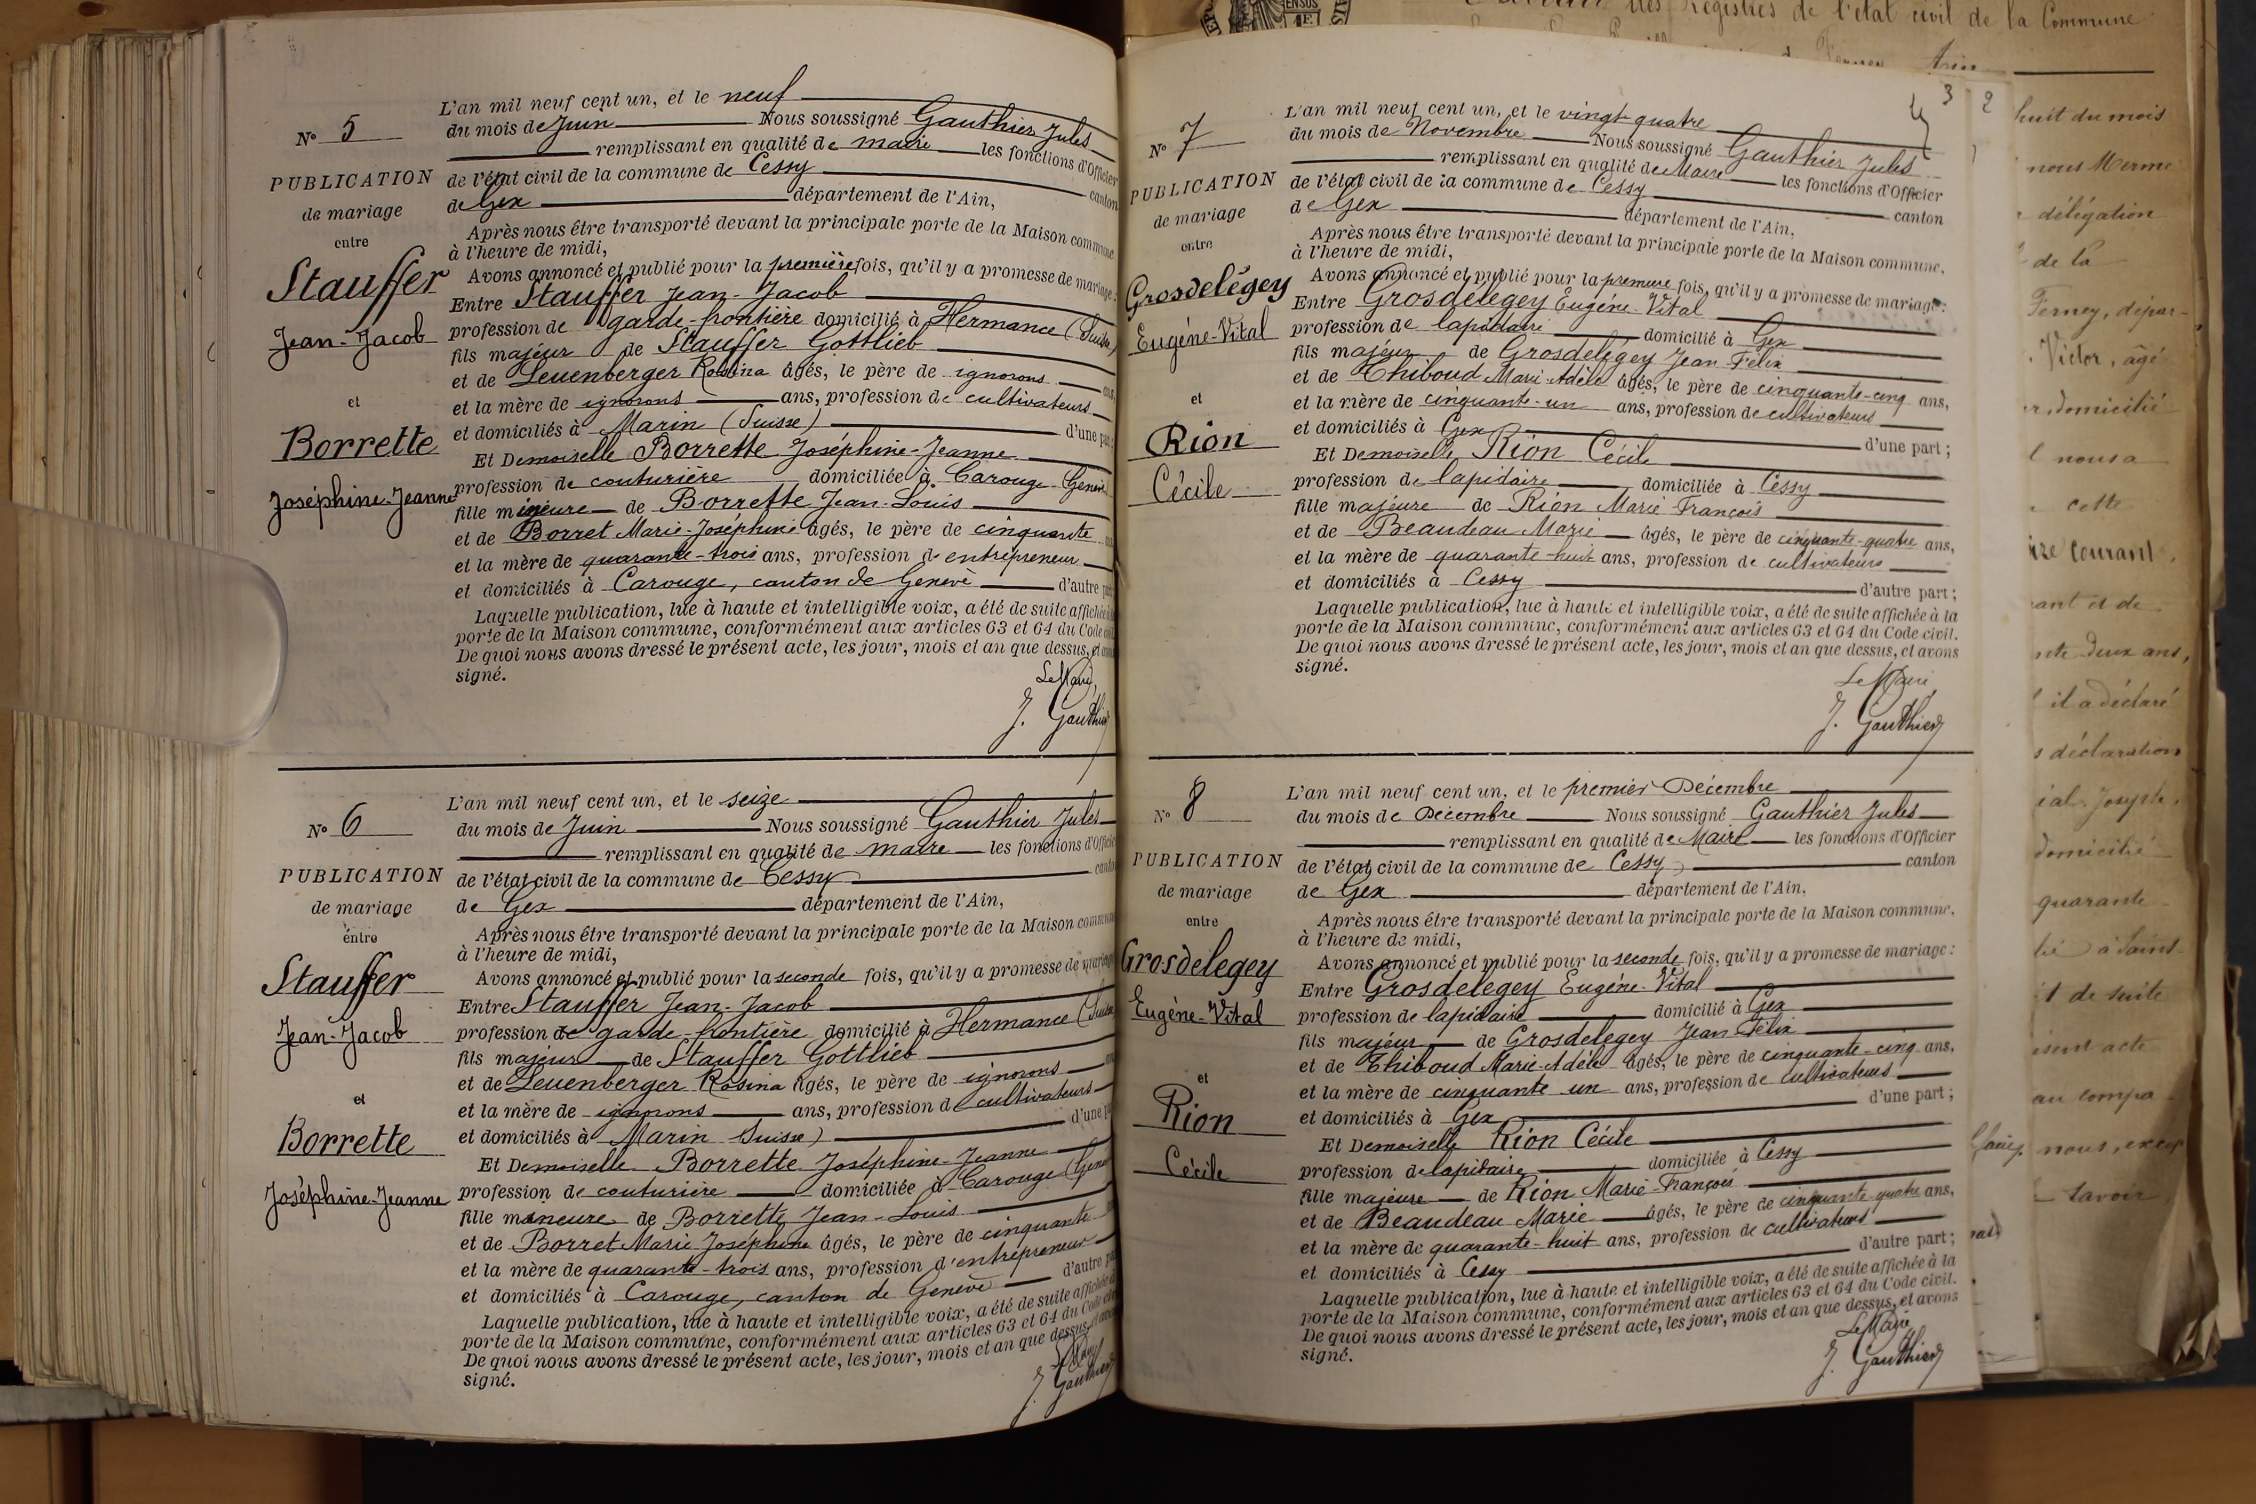 L'an mil neuf cent un, et le neuf
N° 5
du mois de Juin Nous soussigné Gauthier Jules
remplissant en qualité de maire les fonctions d'Officier
PUBLICATION
de l'état civil de la commune de Cessy canton
de mariage
de Gex département de l'Ain,
entre
Après nous être transporté devant la principale porte de la Maison commune
à l'heure de midi,
Stauffer
Avons annoncé et publié pour la première fois, qu'il y a promesse de mariage :
Entre Stauffer Jean-Jacob
Jean-Jacob
profession de garde-frontière domicilié à Hermance (Suisse)
fils majeur de Stauffer Gottlieb
et de Leuenberger Rosina âgés, le père de ignorons ans,
et
et la mère de ignorons ans, profession de cultivateurs
et domiciliés à Marin (Suisse) d'une part ;
Borrette
Et Demoiselle Borrette Joséphine-Jeanne
profession de couturière domiciliée à Carouge-Genève
Joséphine-Jeanne
fille mineure de Borrette Jean-Louis
et de Borret Marie-Joséphine âgés, le père de cinquante
et la mère de quarante-trois ans, profession d'entrepreneur
et domiciliés à Carouge, canton de Genève d'autre part
Laquelle publication, lue à haute et intelligible voix, a été de suite affichée
porte de la Maison commune, conformément aux articles 63 et 64 du Code civil
De quoi nous avons dressé le présent acte, les jour, mois et an que dessus, et avons
signé.
Le Maire,
J. Gauthier
L'an mil neuf cent un, et le seize
N° 6
du mois de Juin Nous soussigné Gauthier Jules
remplissant en qualité de maire les fonctions d'Officier
PUBLICATION
de l'état civil de la commune de Cessy canton
de mariage
de Gex département de l'Ain,
entre
Après nous être transporté devant la principale porte de la Maison commune
à l'heure de midi,
Stauffer
Avons annoncé et publié pour la seconde fois, qu'il y a promesse de mariage
Entre Stauffer Jean-Jacob
Jean-Jacob
profession de garde-frontière domicilié à Hermance (Suisse
fils majeur de Stauffer Gottlieb
et de Leuenberger Rosina âgés, le père de ignorons
et
et la mère de ignorons ans, profession de cultivateurs
et domiciliés à Marin Suisse) d'une part
Borrette
Et Demoiselle Borrette Joséphine-Jeanne
profession de couturière domiciliée à Carouge (Genève
Joséphine-Jeanne
fille mineure de Borrette Jean-Louis
et de Borret Marie Joséphine âgés, le père de cinquante
et la mère de quarante-trois ans, profession d'entrepreneur
et domiciliés à Carouge, canton de Genève d'autre part
Laquelle publication, lue à haute et intelligible voix, a été de suite affichée
porte de la Maison commune, conformément aux articles 63 et 64 du Code
De quoi nous avons dressé le présent acte, les jour, mois et an que dessus, et avons
signé.
Le Maire
J. Gauthier
3
L'an mil neuf cent un, et le vingt-quatre
N° 7
du mois de Novembre Nous soussigné Gauthier Jules
remplissant en qualité de Maire les fonctions d'Officier
PUBLICATION
de l'état civil de la commune de Cessy canton
de mariage
de Gex département de l'Ain,
entre
Après nous être transporté devant la principale porte de la Maison commune,
à l'heure de midi,
Grosdelégey
Avons annoncé et publié pour la première fois, qu'il y a promesse de mariage :
Entre Grosdelegey Eugène-Vital
Eugène-Vital
profession de lapidaire domicilié à Gex
fils majeur de Grosdelegey Jean-Félix
et de Thiboud Marie-Adèle âgés, le père de cinquante-cinq ans,
et
et la mère de cinquante-un ans, profession de cultivateurs
et domiciliés à Gex d'une part ;
Rion
Et Demoiselle Rion Cécile
profession de lapidaire domiciliée à Cessy
Cécile
fille majeure de Rion Marie-François
et de Beaudeau Marie âgés, le père de cinquante-quatre ans,
et la mère de quarante-huit ans, profession de cultivateurs
et domiciliés à Cessy d'autre part ;
Laquelle publication, lue à haute et intelligible voix, a été de suite affichée à la
porte de la Maison commune, conformément aux articles 63 et 64 du Code civil.
De quoi nous avons dressé le présent acte, les jour, mois et an que dessus, et avons
signé.
Le Maire,
J. Gauthier
L'an mil neuf cent un, et le premier Décembre
N° 8
du mois de Décembre Nous soussigné Gauthier Jules
remplissant en qualité de Maire les fonctions d'Officier
PUBLICATION
de l'état civil de la commune de Cessy canton
de mariage
de Gex département de l'Ain.
entre
Après nous être transporté devant la principale porte de la Maison commune.
à l'heure de midi,
Grosdelegey
Avons annoncé et publié pour la seconde fois, qu'il y a promesse de mariage :
Entre Grosdelegey Eugène-Vital
Eugène-Vital
profession de lapidaire domicilié à Gex
fils majeur de Grosdelegey Jean-Félix
et de Thiboud Marie-Adèle âgés, le père de cinquante-cinq ans,
et
et la mère de cinquante un ans, profession de cultivateurs
et domiciliés à Gex d'une part ;
Rion
Et Demoiselle Rion Cécile
profession de lapidaire domiciliée à Cessy
Cécile
fille majeure de Rion Marie-François
et de Beaudeau Marie âgés, le père de cinquante-quatre ans,
et la mère de quarante-huit ans, profession de cultivateurs
et domiciliés à Cessy d'autre part ;
Laquelle publication, lue à haute et intelligible voix, a été de suite affichée à la
porte de la Maison commune, conformément aux articles 63 et 64 du Code civil.
De quoi nous avons dressé le présent acte, les jour, mois et an que dessus, et avons
signé.
Le Maire
J. Gauthier
des Registres de l'état civil de la Commune
2
huit du mois
nous Merme
délégation
de la
Ferney, dépar-
Victor, âgé
domicilié
nous a
cette
courant,
ant et de
deux ans,
il a déclaré
déclaration
Joseph,
domicilié
quarante
à Saint
et de suite
acte
au compa
nous, excep
savoir